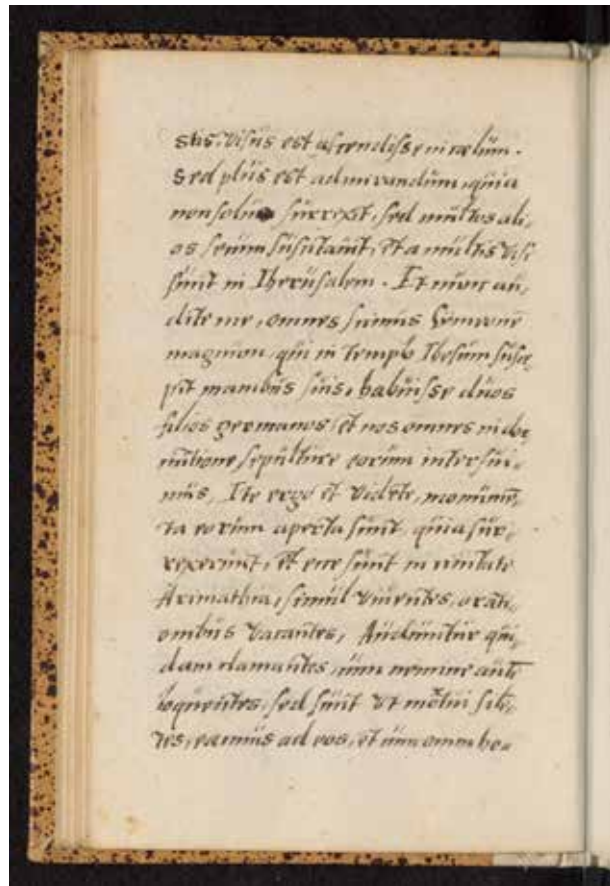 stis, visus est ascendisse in cœlum.
Sed plus est admirandum, quia
non solus surrexit, sed multos ali,
os secum suscitavit, et a multis visi
sunt in Iherusalem. Et nunc au,
dite me, omnes scimus Semeone
magnum, qui in templo Ihesum susce,
pit manibus suis, habuisse duos
filios germanos, et nos omnes in dor
mitione sepulture eorum inter fui,
mus, Ite ergo et videte, monume̅,
ta eorum aperta sunt, quia sur,
rexerunt, et ecce sunt in civitate
Arimathia, simul viventes, orati,
onibus vacantes, Audiuntur qui,
dam clamantes, cum nemine aute̅
loquentes, sed sunt ut mortui sile̅,
tes, eamus ad eos, et cum omni ho,